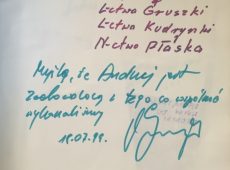 L-ctwo Gruszki
L-ctwo Kudrynki
N-ctwo Płaska
Myślę, że Andrzej jest
zadowolony z tego co wspólnie
wykonaliśmy
19.07.99.